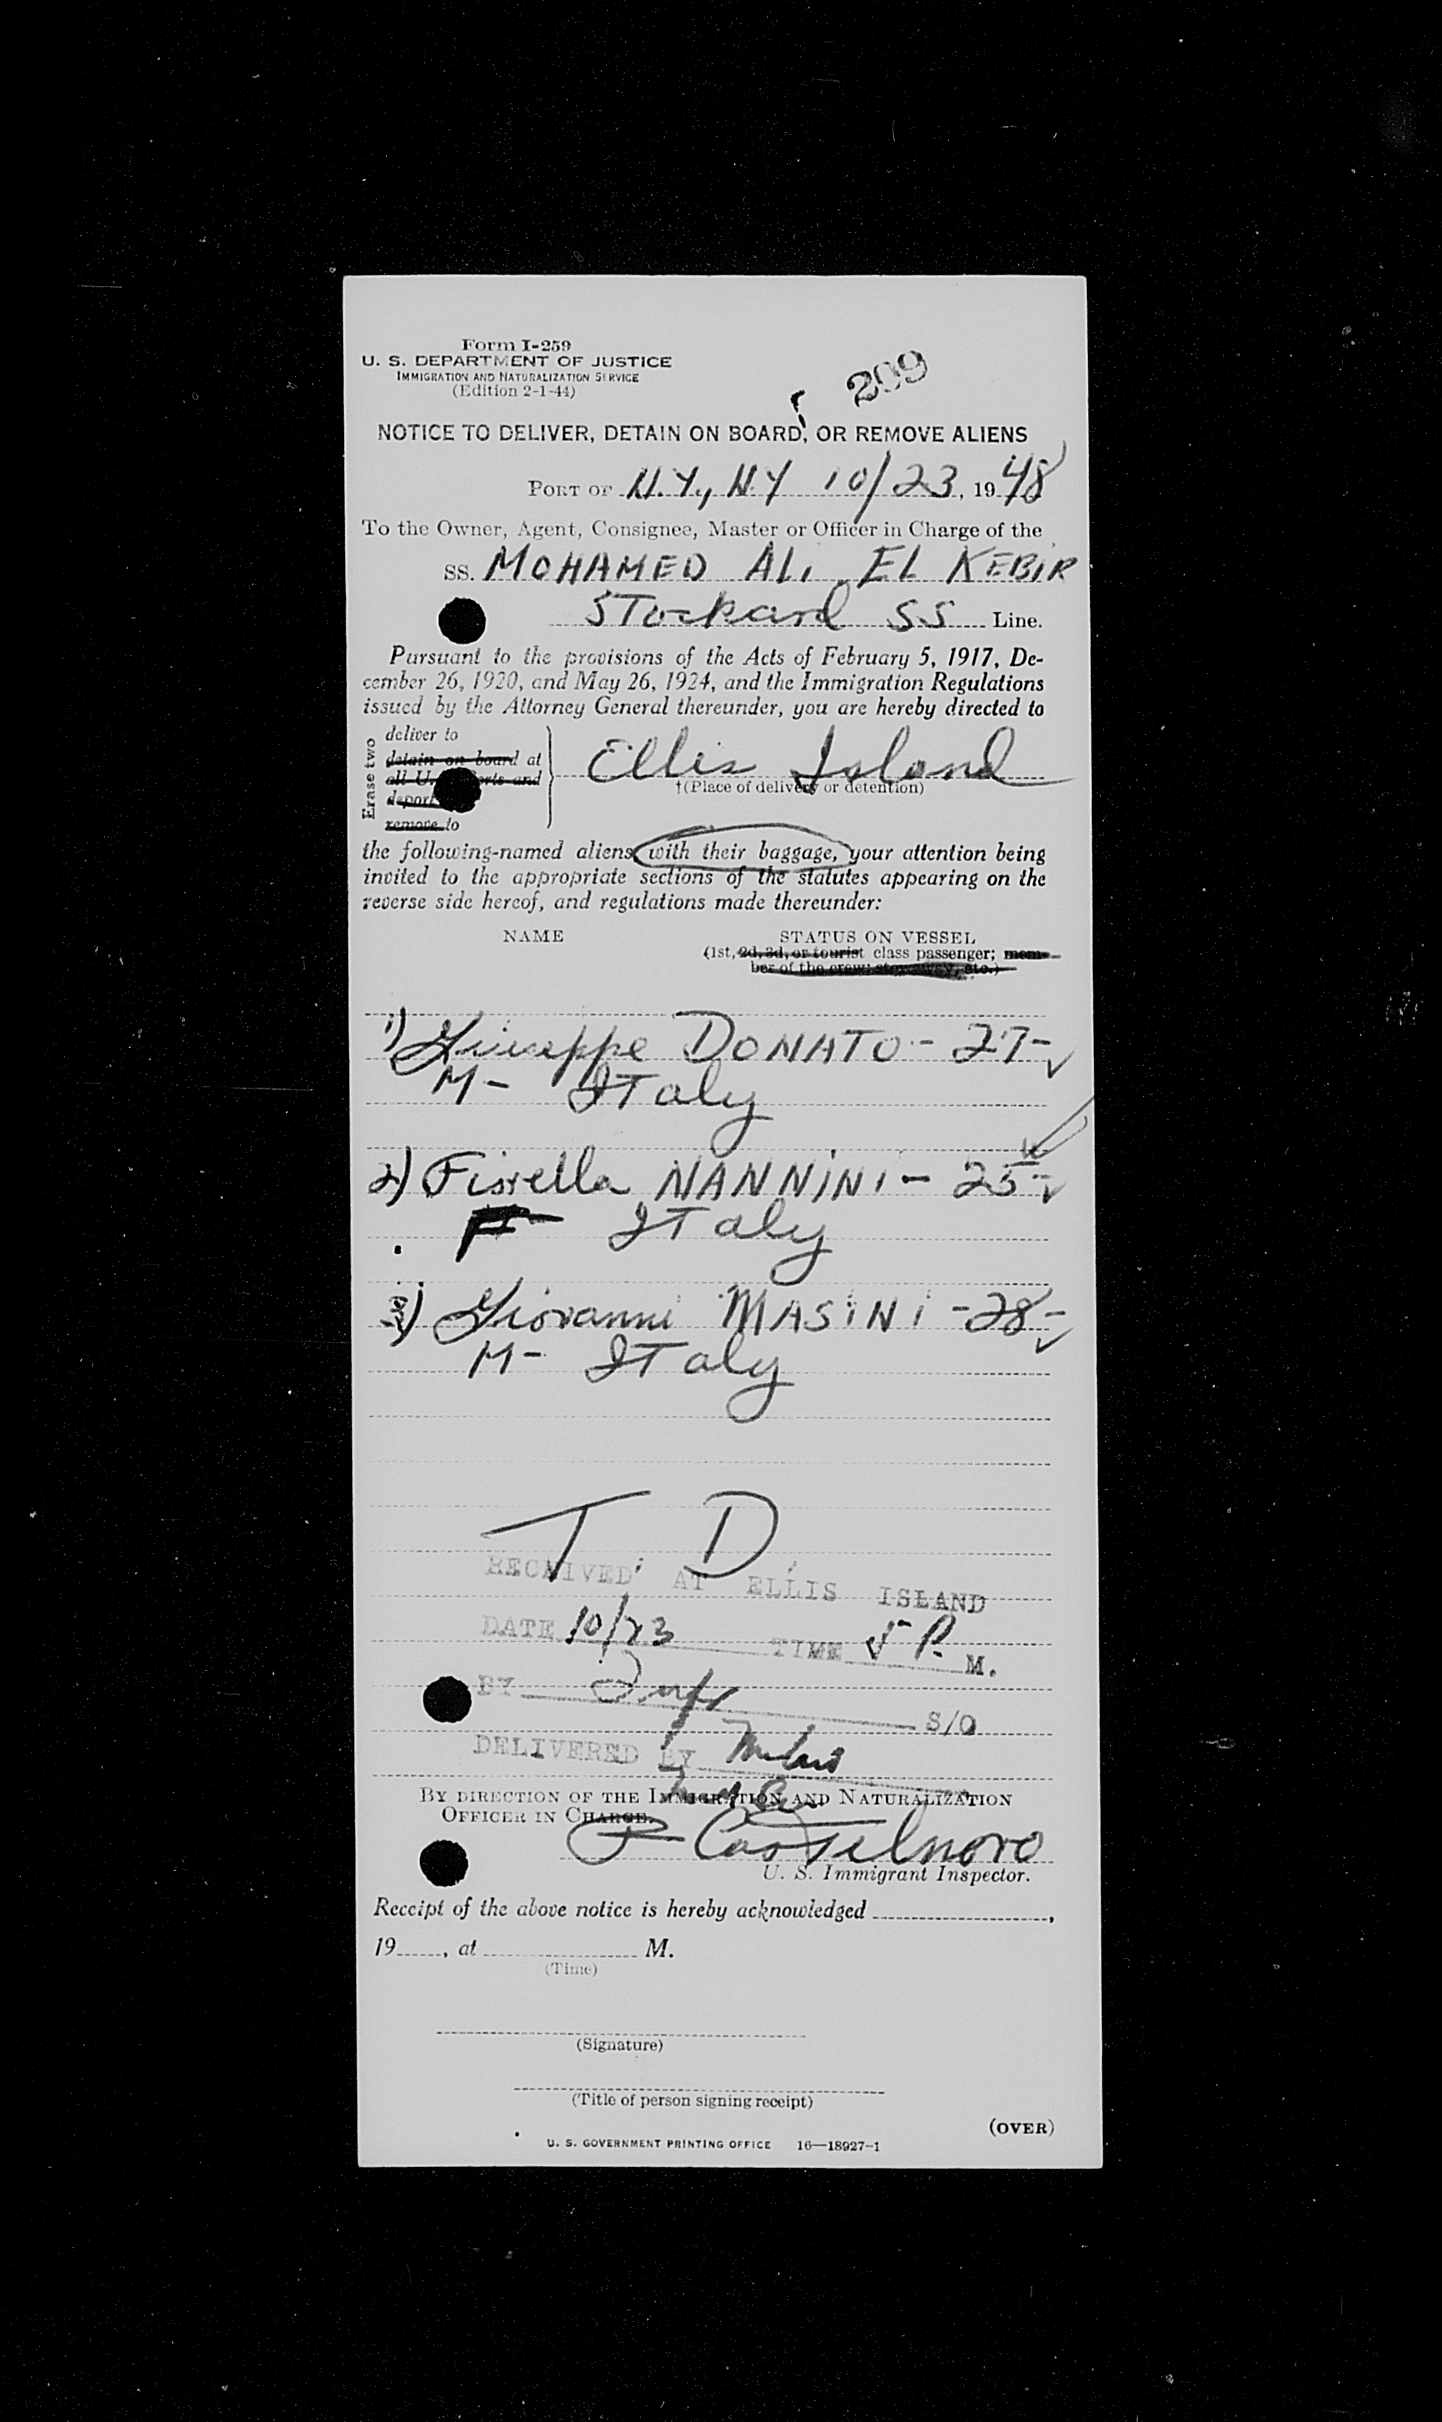 Form I-259
U. S. DEPARTMENT OF JUSTICE
IMMIGRATION AND NATURALIZATION SERVICE
(Edition 2-1-44)
209
NOTICE TO DELIVER, DETAIN ON BOARD, OR REMOVE ALIENS
PORT OF N.Y., NY 10/23, 1948
To the Owner, Agent, Consignee, Master or Officer in Charge of the
SS. MOHAMED ALi EL KEBIR
STockard SS Line.
Pursuant to the provisions of the Acts of February 5, 1917, De-
cember 26, 1920, and May 26, 1924, and the Immigration Regulations
issued by the Attorney General thereunder, you are hereby directed to
Erase two
deliver to
detain on board at
all U. S. ports and
deport
remove to
Ellis Island
†(Place of delivery or detention)
the following-named aliens with their baggage, your attention being
invited to the appropriate sections of the statutes appearing on the
reverse side hereof, and regulations made thereunder:
NAME STATUS ON VESSEL
(1st, 2d, 3d, or tourist class passenger; mem-
ber of the crew; stowaway, etc.)
1) Giuseppe DONATO - 27-
M- ITaly
2) Fiorella NANNiNi - 25-
F ITaly
3) Giovanni MASiNi - 28-
M- ITaly
T. D.
RECEIVED AT ELLIS ISLAND
DATE 10/23 TIME 5 P. M.
BY S/O
DELIVERED BY
BY DIRECTION OF THE IMMIGRATION AND NATURALIZATION
OFFICER IN CHARGE.
P Castelnovo
U. S. Immigrant Inspector.
Receipt of the above notice is hereby acknowledged ,
19 , at M.
(Time)
(Signature)
(Title of person signing receipt)
(OVER)
U. S. GOVERNMENT PRINTING OFFICE 16—18927-1